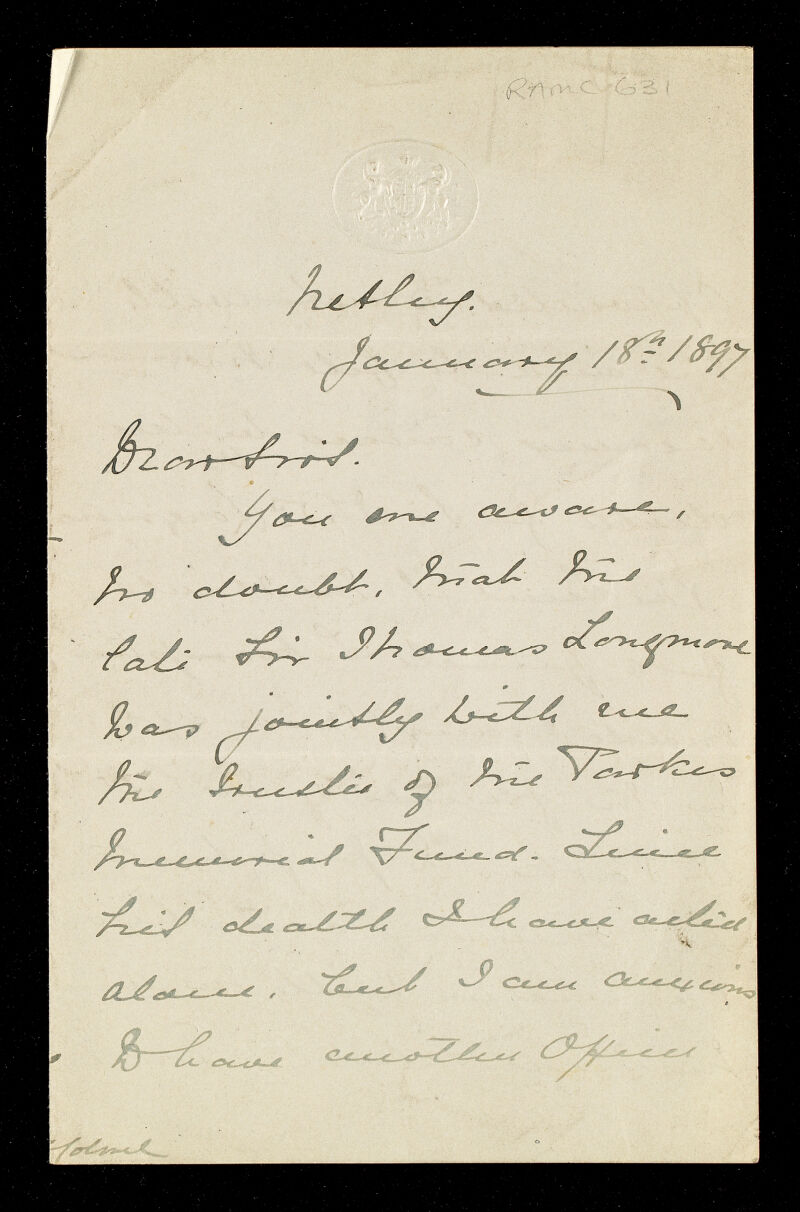 RAMC 631
Netley.
January 18th 1897
Dear Sirs.
You are aware,
no doubt, that the
late Sir Thomas Longmore
was jointly with me
the trustee of the Parkes
Memorial Fund. Since
his death I have acted
alone. but I am anxious
to have another Officer
Colonel